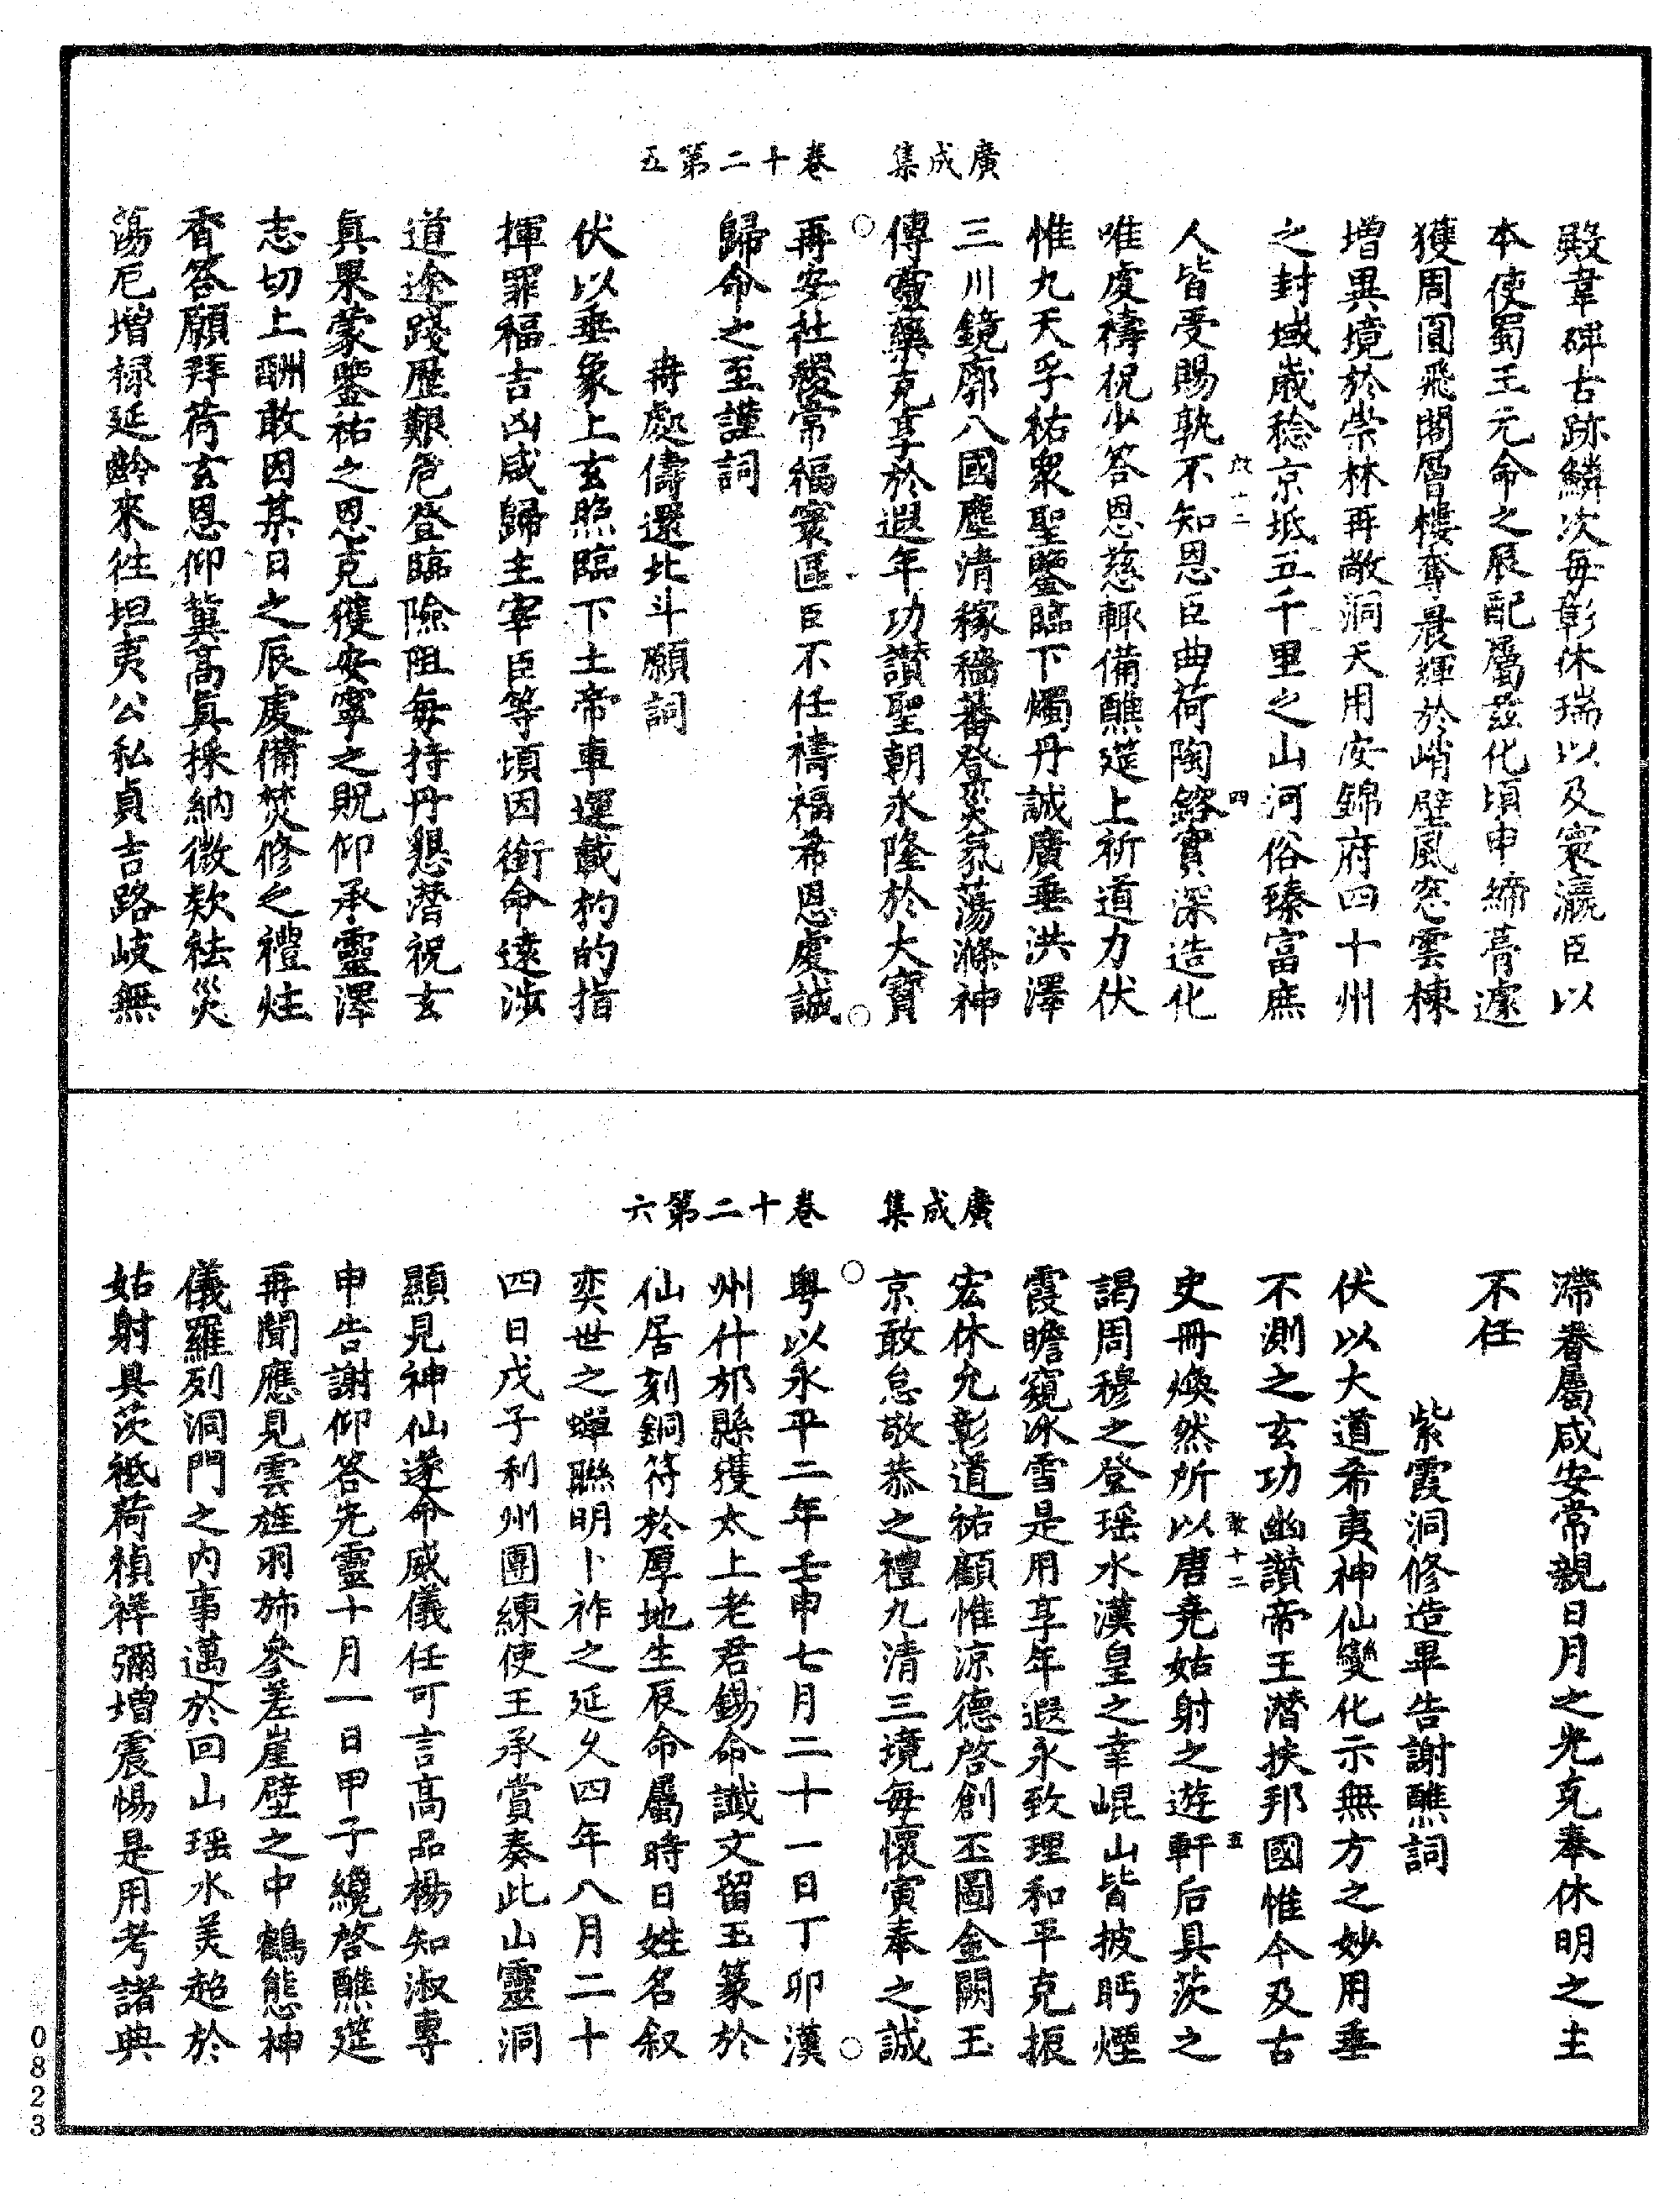 廣成集　卷十二第五
殿韋碑古跡鱗次每彰休瑞以及寰瀛臣以
本使蜀王元命之辰配屬兹化頃申締葺遽
獲周圓飛閣層樓奪晨輝於峭壁風窓雲棟
增異境於崇林再敞洞天用安錦府四十州
之封域歲稔京坻五千里之山河俗臻富庶
十二　四
人皆受賜孰不知恩臣曲荷陶鎔實深造化
唯虔禱祝少答恩慈輙備醮筵上祈道力伏
惟九天孚祐衆聖鑒臨下燭丹誠廣垂洪澤
三川鏡廓八國塵清稼穡蕃登災氛蕩滌神
傳靈藥克享於遐年功讃聖朝永隆於大寶
再安社稷常福寰區臣不任禱福希恩虔誠
歸命之至謹詞
冉處儔還北斗願詞
伏以垂象上玄照臨下土帝車運載杓的指
揮罪福吉凶咸歸主宰臣等頃因銜命遠涉
道途踐歷艱危登臨險阻每持丹懇潛祝玄
真果蒙鑒祐之恩克獲安寧之貺仰承靈澤
志切上酬敢因某日之辰虔備焚修之禮炷
香答願拜荷玄恩仰冀高真採納微欵祛災
蕩厄增禄延齡來往坦夷公私貞吉路岐無
廣成集　卷十二第六
滯眷屬咸安常親日月之光克奉休明之主
不任
紫霞洞修造畢告謝醮詞
伏以大道希夷神仙變化示無方之妙用垂
不測之玄功幽讃帝王潛挾邦國惟今及古
敢十二　五
史冊煥然所以唐堯姑射之遊軒后具茨之
謁周穆之登瑶水漢皇之幸崐山皆披眄煙
霞瞻窺冰雪是用享年遐永致理和平克振
宏休允彰道祐顧惟涼德啓創丕圖金闕玉
京敢怠敬恭之禮九清三境每懷寅奉之誠
粤以永平二年壬申七月二十一日丁卯漢
州什邡縣獲太上老君錫命讖文留玉篆於
仙居刻銅符於厚地生辰命屬時日姓名叙
奕世之蟬聯明卜祚之延久四年八月二十
四日戊子利州團練使王承賞奏此山靈洞
顯見神仙遂命威儀任可言高品楊知淑專
申告謝仰答先靈十月一日甲子纔啓醮筵
再聞應見雲旌羽斾參差崖壁之中鶴態神
儀羅列洞門之内事邁於回山瑶水羙超於
姑射具茨祗荷禎祥彌增震惕是用考諸典
0823